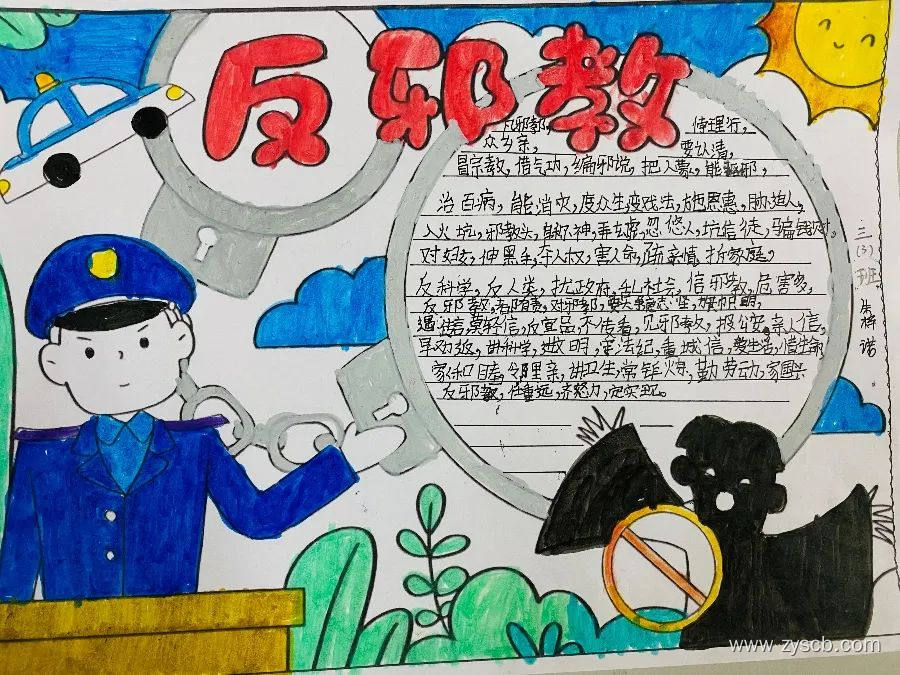 反邪教
反邪教，伸理行，
众乡亲，要认清，
冒宗教，借气功，编邪说，把人蒙，能驱邪，
治百病，能消灾，度众生，变戏法，施恩惠，胁迫人，
入火坑，邪教头，自称神，弄玄虚，忽悠人，坑信徒，骗钱财，
对妇女，伸黑手，夺人权，害人命，疏亲情，拆家庭。
反科学，反人类，扰政府，乱社会，信邪教，危害多，
反邪教，对邪教，
遇传者，莫轻信，反宣品，不传看，见邪教，报公安，亲人信，
早劝返，讲科学，守法纪，重诚信，
家和睦，邻里亲，讲卫生，常锻炼，勤劳动，家国兴
反邪教，任重远，齐努力，定实现。
三(3)班
诺
www.zyscb.com